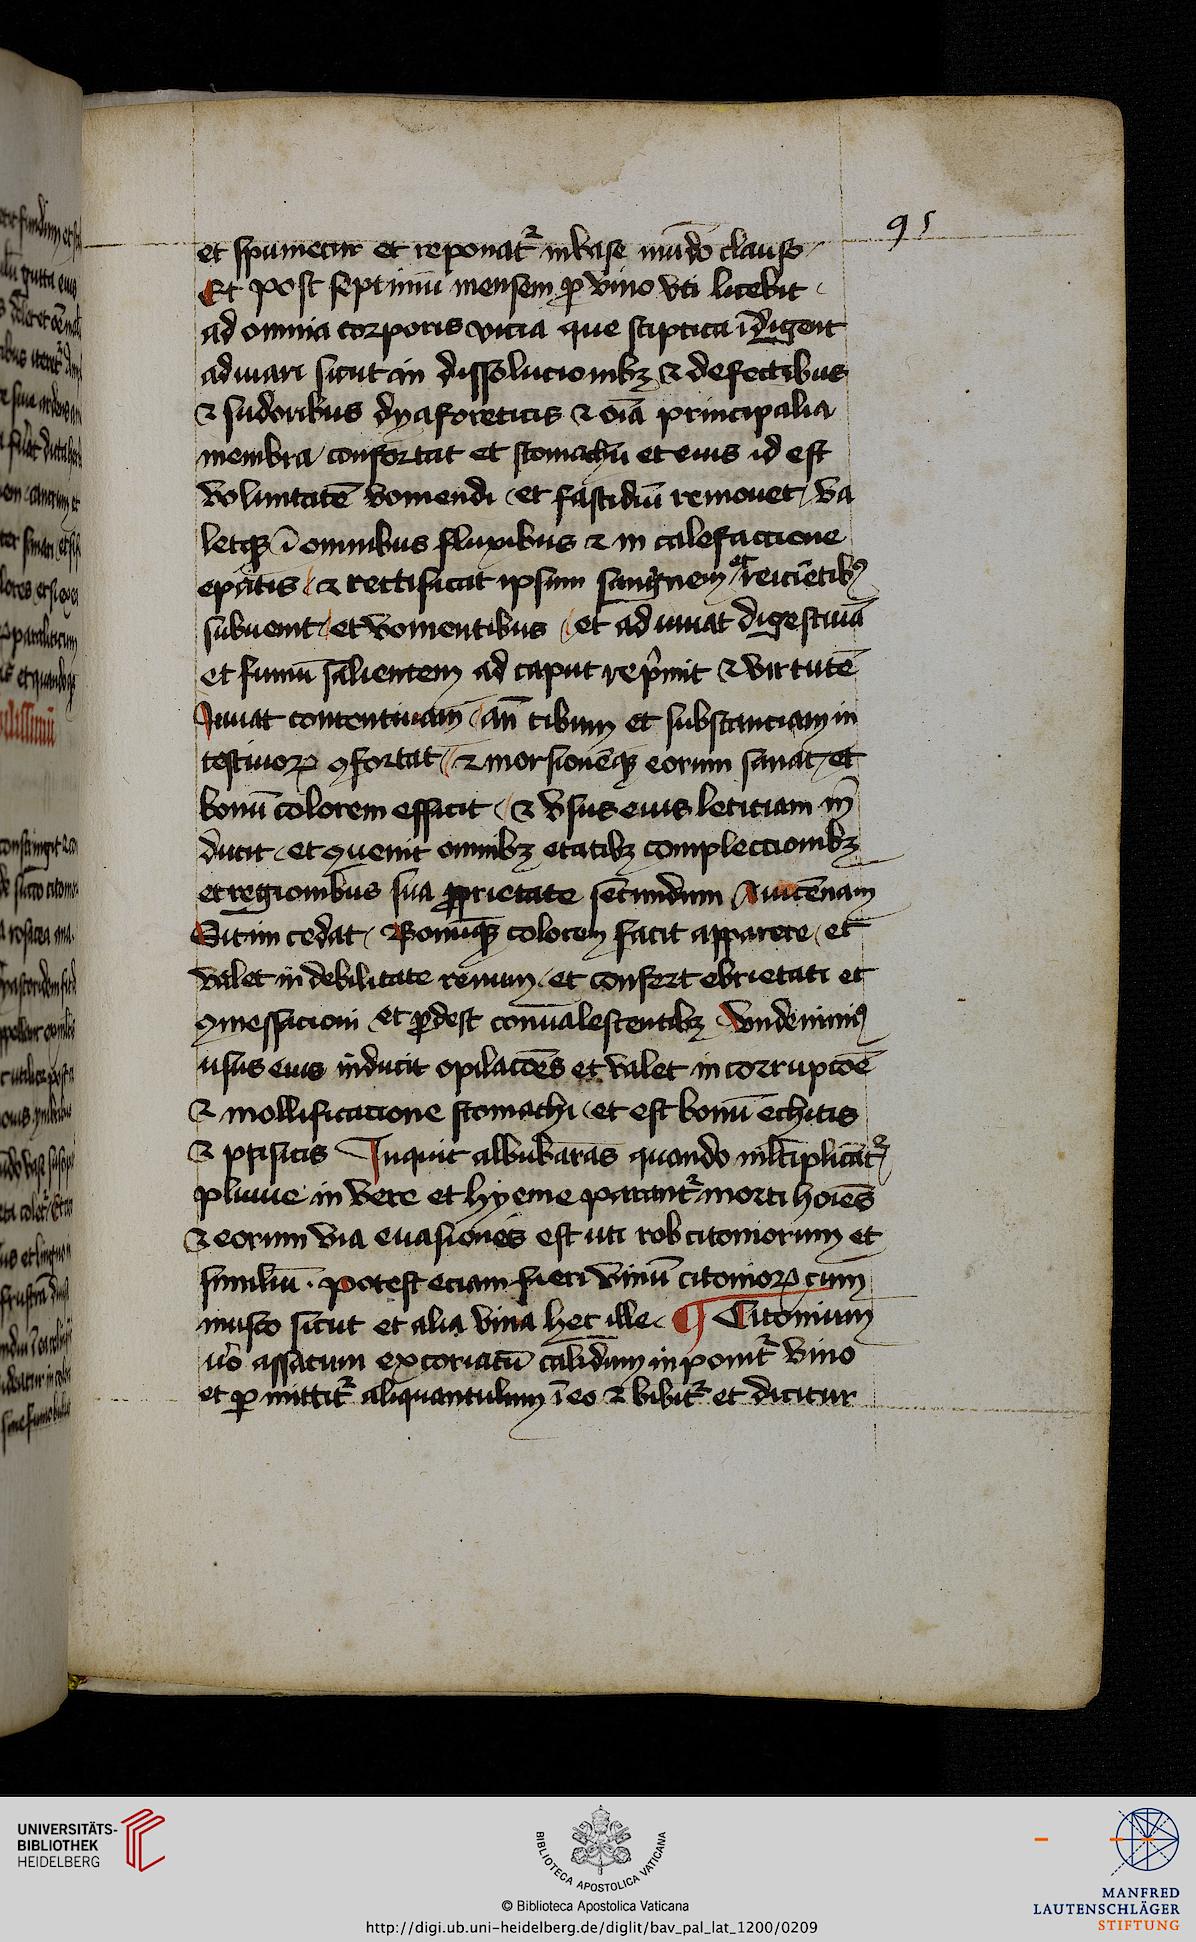 95
et spumetur et reponat᷑ in vase mūdo clauso
Et post septimū mensem ꝑ vino vti licebit
ad omnia corporis vicia que stiptica īdigent
adiuuari sicut in dissolucionibꝫ ⁊ defectibus
⁊ sudoribus dyaforeticis ⁊ oīa principalia
membra confortat et stomachū et eius id est
voluntatē vomendi et fastidiū remouet va
letqꝫ ī omnibus fluxibus ⁊ in calefactione
epatis ⁊ rectificat ipsum sangwnem reiciētibꝰ
subuenit et vomentibus et adiuuat digestiuā
et fumū salientem ad caput rep̄mit ⁊ virtutē
Juuat contentiuam an̄ cibum et substanciam in
testinoꝝ ꝯfortat ⁊ morsionēqꝫ eorum sanat et
bonū colorem efficit ⁊ vsus eius leticiam in
ducit et ꝯuenit omnibꝫ etatibꝫ complectionibꝫ
et regionibus sua ꝓprietate secundum Auicēnam
Sitim cedat Bonūqꝫ colorem facit apparere et
valet in debilitate renum et confert ebrietati et
et ꝓdest conualescentibꝫ
usus eius inducit opilacōes et valet in corrupcōe
⁊ mollificacione stomachi et est bonū echitis
⁊ ptisicis Inquit albukaras quando ml̄tiplicāt᷑
pluuie in vere et hyeme parant᷑ morti hoīes
⁊ eorum via euasiones est uti rob citoniorum et
similiū. potest eciam fieri vinū citonioꝝ cum
musco sicut et alia vina hec ille ¶ Citonium
u᷑o assatum excoriatū calidum inponit᷑ vino
et ꝑmittit᷑ aliquantulum ī eo ⁊ bibit᷑ et dicitur
UNIVERSITÄTS-
BIBLIOTHEK
HEIDELBERG
BIBLIOTECA APOSTOLICA VATICANA
© Biblioteca Apostolica Vaticana
http://digi.ub.uni-heidelberg.de/diglit/bav_pal_lat_1200/0209
MANFRED
LAUTENSCHLÄGER
STIFTUNG